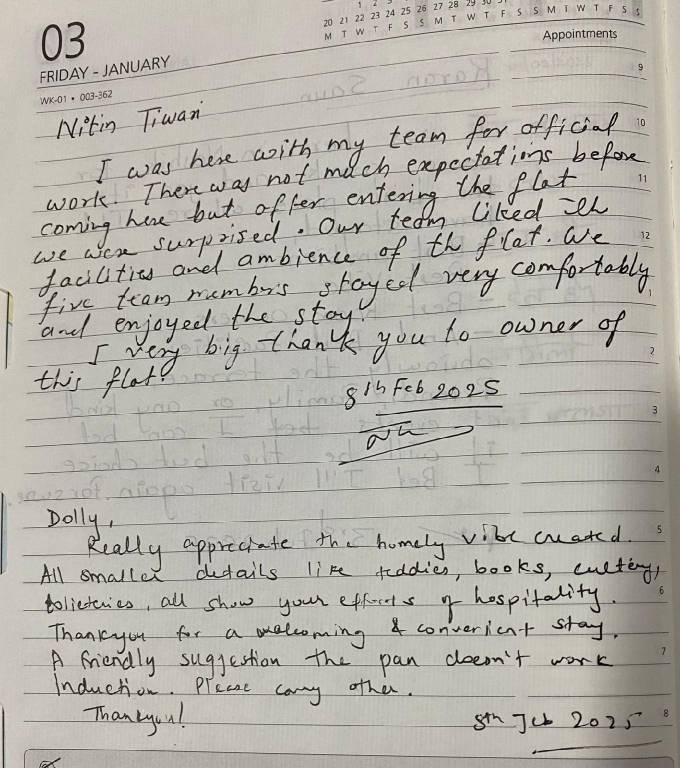 20 21 22 23 24 25 26 27 28 29 30 31
M T W T F S S M T W T F S S M T W T F S S
03
FRIDAY - JANUARY
WK-01 • 003-362
Appointments
9
Nitin Tiwari
I was here with my team for official
10
work. There was not much expectations before
11
coming here but after entering the flat
we were surprised. Our team liked
12
facilities and ambience of th flat. We
five team members stayed very comfortably
1
and enjoyed the stay!
I very big thank you to owner of
2
this flat!
8th Feb 2025
3
4
Dolly,
Really appreciate the homely vibe created.
5
All smaller details like teddies, books, cutlery,
6
toileteries, all show your efforts of hospitality.
Thankyou for a welcoming & convenient stay.
7
A friendly suggestion the pan doesn't work
Induction. Please carry other.
Thankyou!
8th Feb 2025
8